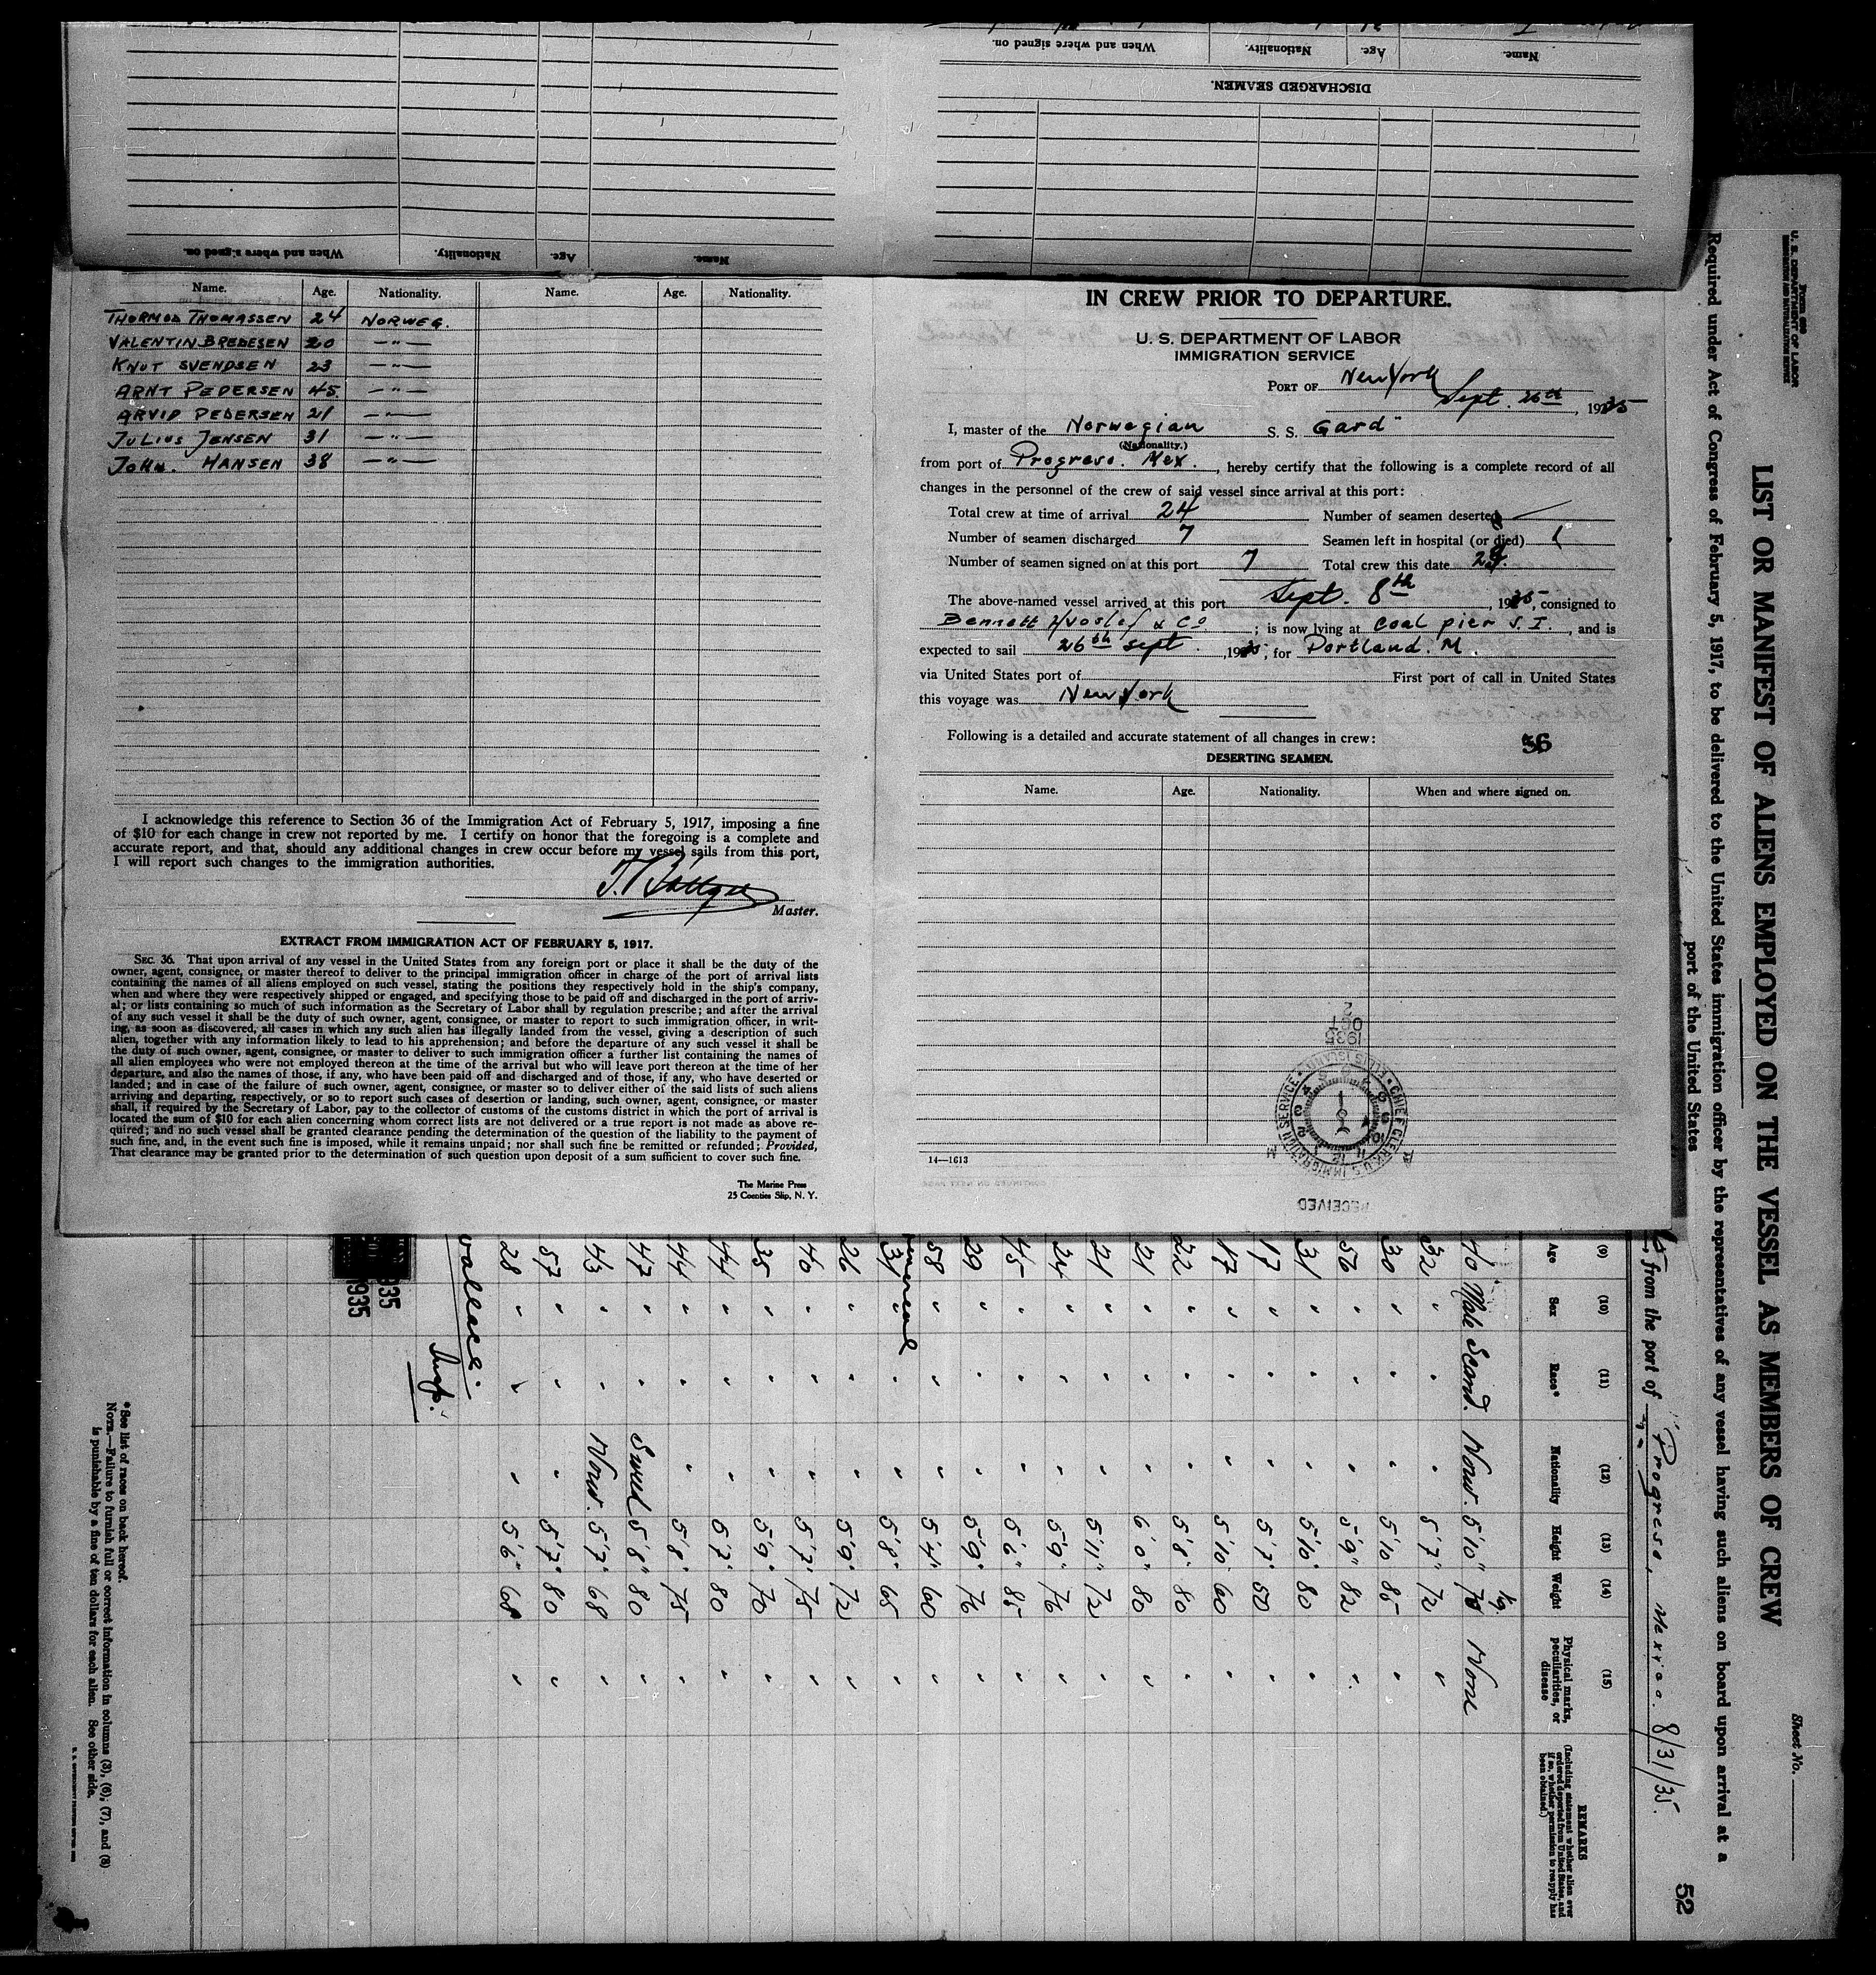 When and where signed on.
Nationality.
Age.
Name.
DISCHARGED SEAMEN.
Name.
Age.
Nationality.
When and where signed on.
Name. Age. Nationality. Name. Age. Nationality.
THORMOD THOMASSEN 24 NORWEG.
VALENTIN BREDESEN 20 —"—
KNUT SVENDSEN 23 —"—
ARNT PEDERSEN 45. —"—
ARVID PEDERSEN 21 —"—
JULIUS JENSEN 31 —"—
JOHN. HANSEN 38 —"—
I acknowledge this reference to Section 36 of the Immigration Act of February 5, 1917, imposing a fine
of $10 for each change in crew not reported by me. I certify on honor that the foregoing is a complete and
accurate report, and that, should any additional changes in crew occur before my vessel sails from this port,
I will report such changes to the immigration authorities.
Master.
EXTRACT FROM IMMIGRATION ACT OF FEBRUARY 5, 1917.
SEC. 36. That upon arrival of any vessel in the United States from any foreign port or place it shall be the duty of the
owner, agent, consignee, or master thereof to deliver to the principal immigration officer in charge of the port of arrival lists
containing the names of all aliens employed on such vessel, stating the positions they respectively hold in the ship's company,
when and where they were respectively shipped or engaged, and specifying those to be paid off and discharged in the port of arriv-
al; or lists containing so much of such information as the Secretary of Labor shall by regulation prescribe; and after the arrival
of any such vessel it shall be the duty of such owner, agent, consignee, or master to report to such immigration officer, in writ-
ing, as soon as discovered, all cases in which any such alien has illegally landed from the vessel, giving a description of such
alien, together with any information likely to lead to his apprehension; and before the departure of any such vessel it shall be
the duty of such owner, agent, consignee, or master to deliver to such immigration officer a further list containing the names of
all alien employees who were not employed thereon at the time of the arrival but who will leave port thereon at the time of her
departure, and also the names of those, if any, who have been paid off and discharged and of those, if any, who have deserted or
landed; and in case of the failure of such owner, agent, consignee, or master so to deliver either of the said lists of such aliens
arriving and departing, respectively, or so to report such cases of desertion or landing, such owner, agent, consignee, or master
shall, if required by the Secretary of Labor, pay to the collector of customs of the customs district in which the port of arrival is
located the sum of $10 for each alien concerning whom correct lists are not delivered or a true report is not made as above re-
quired; and no such vessel shall be granted clearance pending the determination of the question of the liability to the payment of
such fine, and, in the event such fine is imposed, while it remains unpaid; nor shall such fine be remitted or refunded; Provided,
That clearance may be granted prior to the determination of such question upon deposit of a sum sufficient to cover such fine.
The Marine Press
25 Coenties Slip, N. Y.
IN CREW PRIOR TO DEPARTURE.
U. S. DEPARTMENT OF LABOR
IMMIGRATION SERVICE
PORT OF New York
Sept. 26th, 1935
I, master of the Norwegian S. S. Gard"
(Nationality.)
from port of Progreso. Mex., hereby certify that the following is a complete record of all
changes in the personnel of the crew of said vessel since arrival at this port:
Total crew at time of arrival 24 Number of seamen deserted —
Number of seamen discharged 7 Seamen left in hospital (or died) 1
Number of seamen signed on at this port 7 Total crew this date
The above-named vessel arrived at this port Sept. 8th, 1935, consigned to
Bennett Hvoslef & Co; is now lying at Coal pier S. I., and is
expected to sail 26th sept., 1935, for Portland. M.
via United States port of First port of call in United States
this voyage was New York
Following is a detailed and accurate statement of all changes in crew:
36
DESERTING SEAMEN.
Name. Age. Nationality. When and where signed on.
14—1613
RECEIVED
CHIEF CLERK U.S. IMMIGRATION SERVICE • ELLIS ISLAND
1935 OCT 2
U. S. DEPARTMENT OF LABOR
IMMIGRATION AND NATURALIZATION SERVICE
Sheet No.
LIST OR MANIFEST OF ALIENS EMPLOYED ON THE VESSEL AS MEMBERS OF CREW
Required under Act of Congress of February 5, 1917, to be delivered to the United States immigration officer by the representatives of any vessel having such aliens on board upon arrival at a
port of the United States
52
from the port of Progreso, Mexico. 8/31/35.
(9) (10) (11) (12) (13) (14) (15)
Age Sex Race* Nationality Height Weight Physical marks, peculiarities, or disease
REMARKS
(Including statement whether alien ever ordered deported from United States, and if so, whether permission to reapply has been obtained.)
kg.
40 Male Scand. Norw. 5'10" 70 None
32 " " " 5'7" 72 "
30 " " " 5'10 85 "
56 " " " 5'9" 82 "
31 " " " 5'10" 80 "
17 " " " 5'7" 50 "
17 " " " 5'10" 60 "
22 " " " 5'8" 80 "
21 " " " 6'0" 80 "
21 " " " 5'11" 72 "
24 " " " 5'9" 76 "
45 " " " 5'6" 85 "
29 " " " 5'9" 76 "
58 " " " 5'4" 60 "
31 " " " 5'8" 65 "
26 " " " 5'9" 72 "
40 " " " 5'7" 75 "
35 " " " 5'9" 70 "
44 " " " 5'7" 80 "
44 " " " 5'8" 75 "
47 " " Swed 5'8" 80 "
43 " " Norw. 5'7" 68 "
57 " " " 5'7" 80 "
28 " " " 5'6" 68 "
Wallace.
Insp.
1935
*See list of races on back hereof.
NOTE.—Failure to furnish full or correct information in columns (3), (6), (7), and (8)
is punishable by a fine of ten dollars for each alien. See other side.